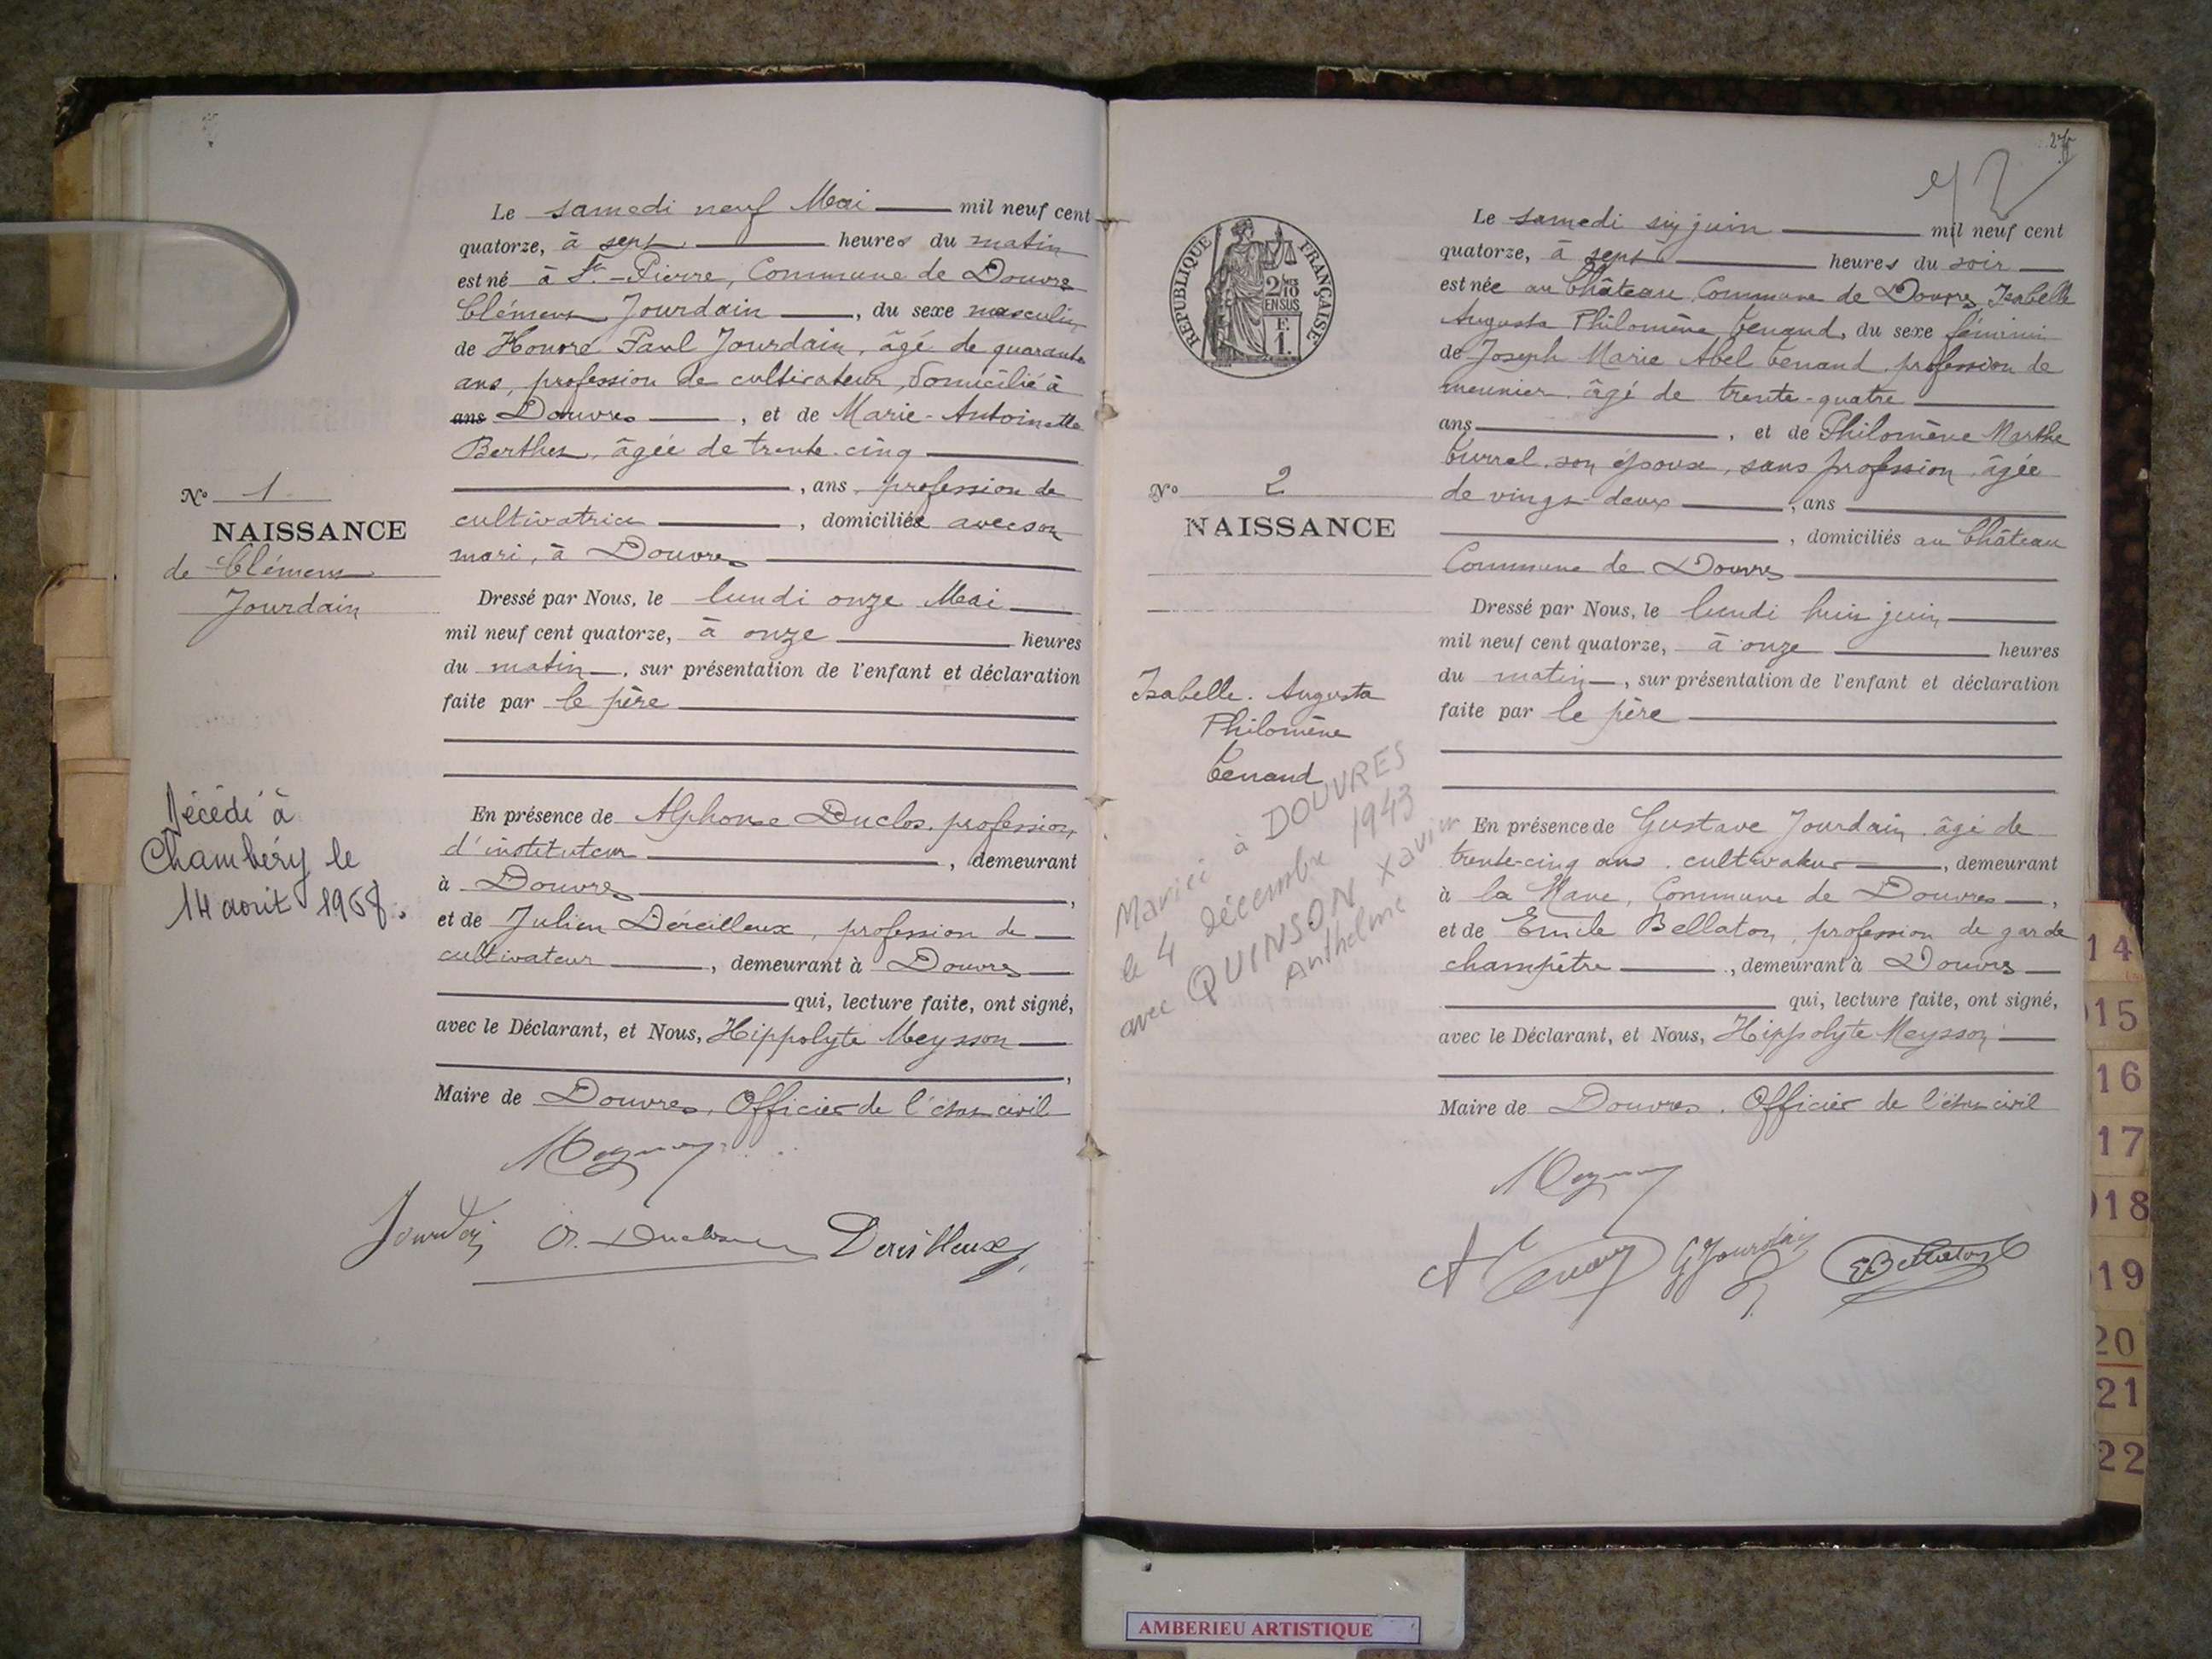 Le samedi neuf Mai mil neuf cent
quatorze, à sept heures du matin
est né à St-Pierre, Commune de Douvres
Clément Jourdain, du sexe masculin
de Honoré Paul Jourdain, âgé de quarante
ans, profession de cultivateur, domicilié à
ans Douvres, et de Marie-Antoinette
Berthet, âgée de trente-cinq
, ans, profession de
cultivatrice, domiciliée avec son
mari, à Douvres
N° 1
NAISSANCE
de Clément
Jourdain
Dressé par Nous, le lundi onze Mai
mil neuf cent quatorze, à onze heures
du matin, sur présentation de l'enfant et déclaration
faite par le père
Décédé à
Chambéry le
14 août 1968.
En présence de Alphonse Duclos, profession
d'instituteur, demeurant
à Douvres,
et de Julien Déreilleux, profession de
cultivateur, demeurant à Douvres
qui, lecture faite, ont signé,
avec le Déclarant, et Nous, Hippolyte Meysson
,
Maire de Douvres, Officier de l'état civil
Jourdain
27
RÉPUBLIQUE FRANÇAISE
2/10 MES
EN SUS
F.
1.
Le samedi six juin mil neuf cent
quatorze, à sept heures du soir
est née au Château, Commune de Douvres, Isabelle
Augusta Philomène Tenand, du sexe féminin
de Joseph Marie Abel Tenand, profession de
meunier, âgé de trente-quatre
ans, et de Philomène Marthe
Burrel, son épouse, sans profession, âgée
de vingt-deux, ans
, domiciliés au Château
Commune de Douvres
N° 2
NAISSANCE
Isabelle. Augusta
Philomène
Tenand
Mariée à DOUVRES
le 4 décembre 1943
avec QUINSON Xavier
Anthelme
Dressé par Nous, le lundi huit juin
mil neuf cent quatorze, à onze heures
du matin, sur présentation de l'enfant et déclaration
faite par le père
En présence de Gustave Jourdain, âgé de
trente-cinq ans, cultivateur, demeurant
à la Nave, Commune de Douvres,
et de Emile Bellaton, profession de garde
champêtre, demeurant à Douvres
qui, lecture faite, ont signé,
avec le Déclarant, et Nous, Hippolyte Meysson
Maire de Douvres. Officier de l'état civil
G Jourdain
E Bellaton
14
15
16
17
18
19
20
21
22
AMBERIEU ARTISTIQUE